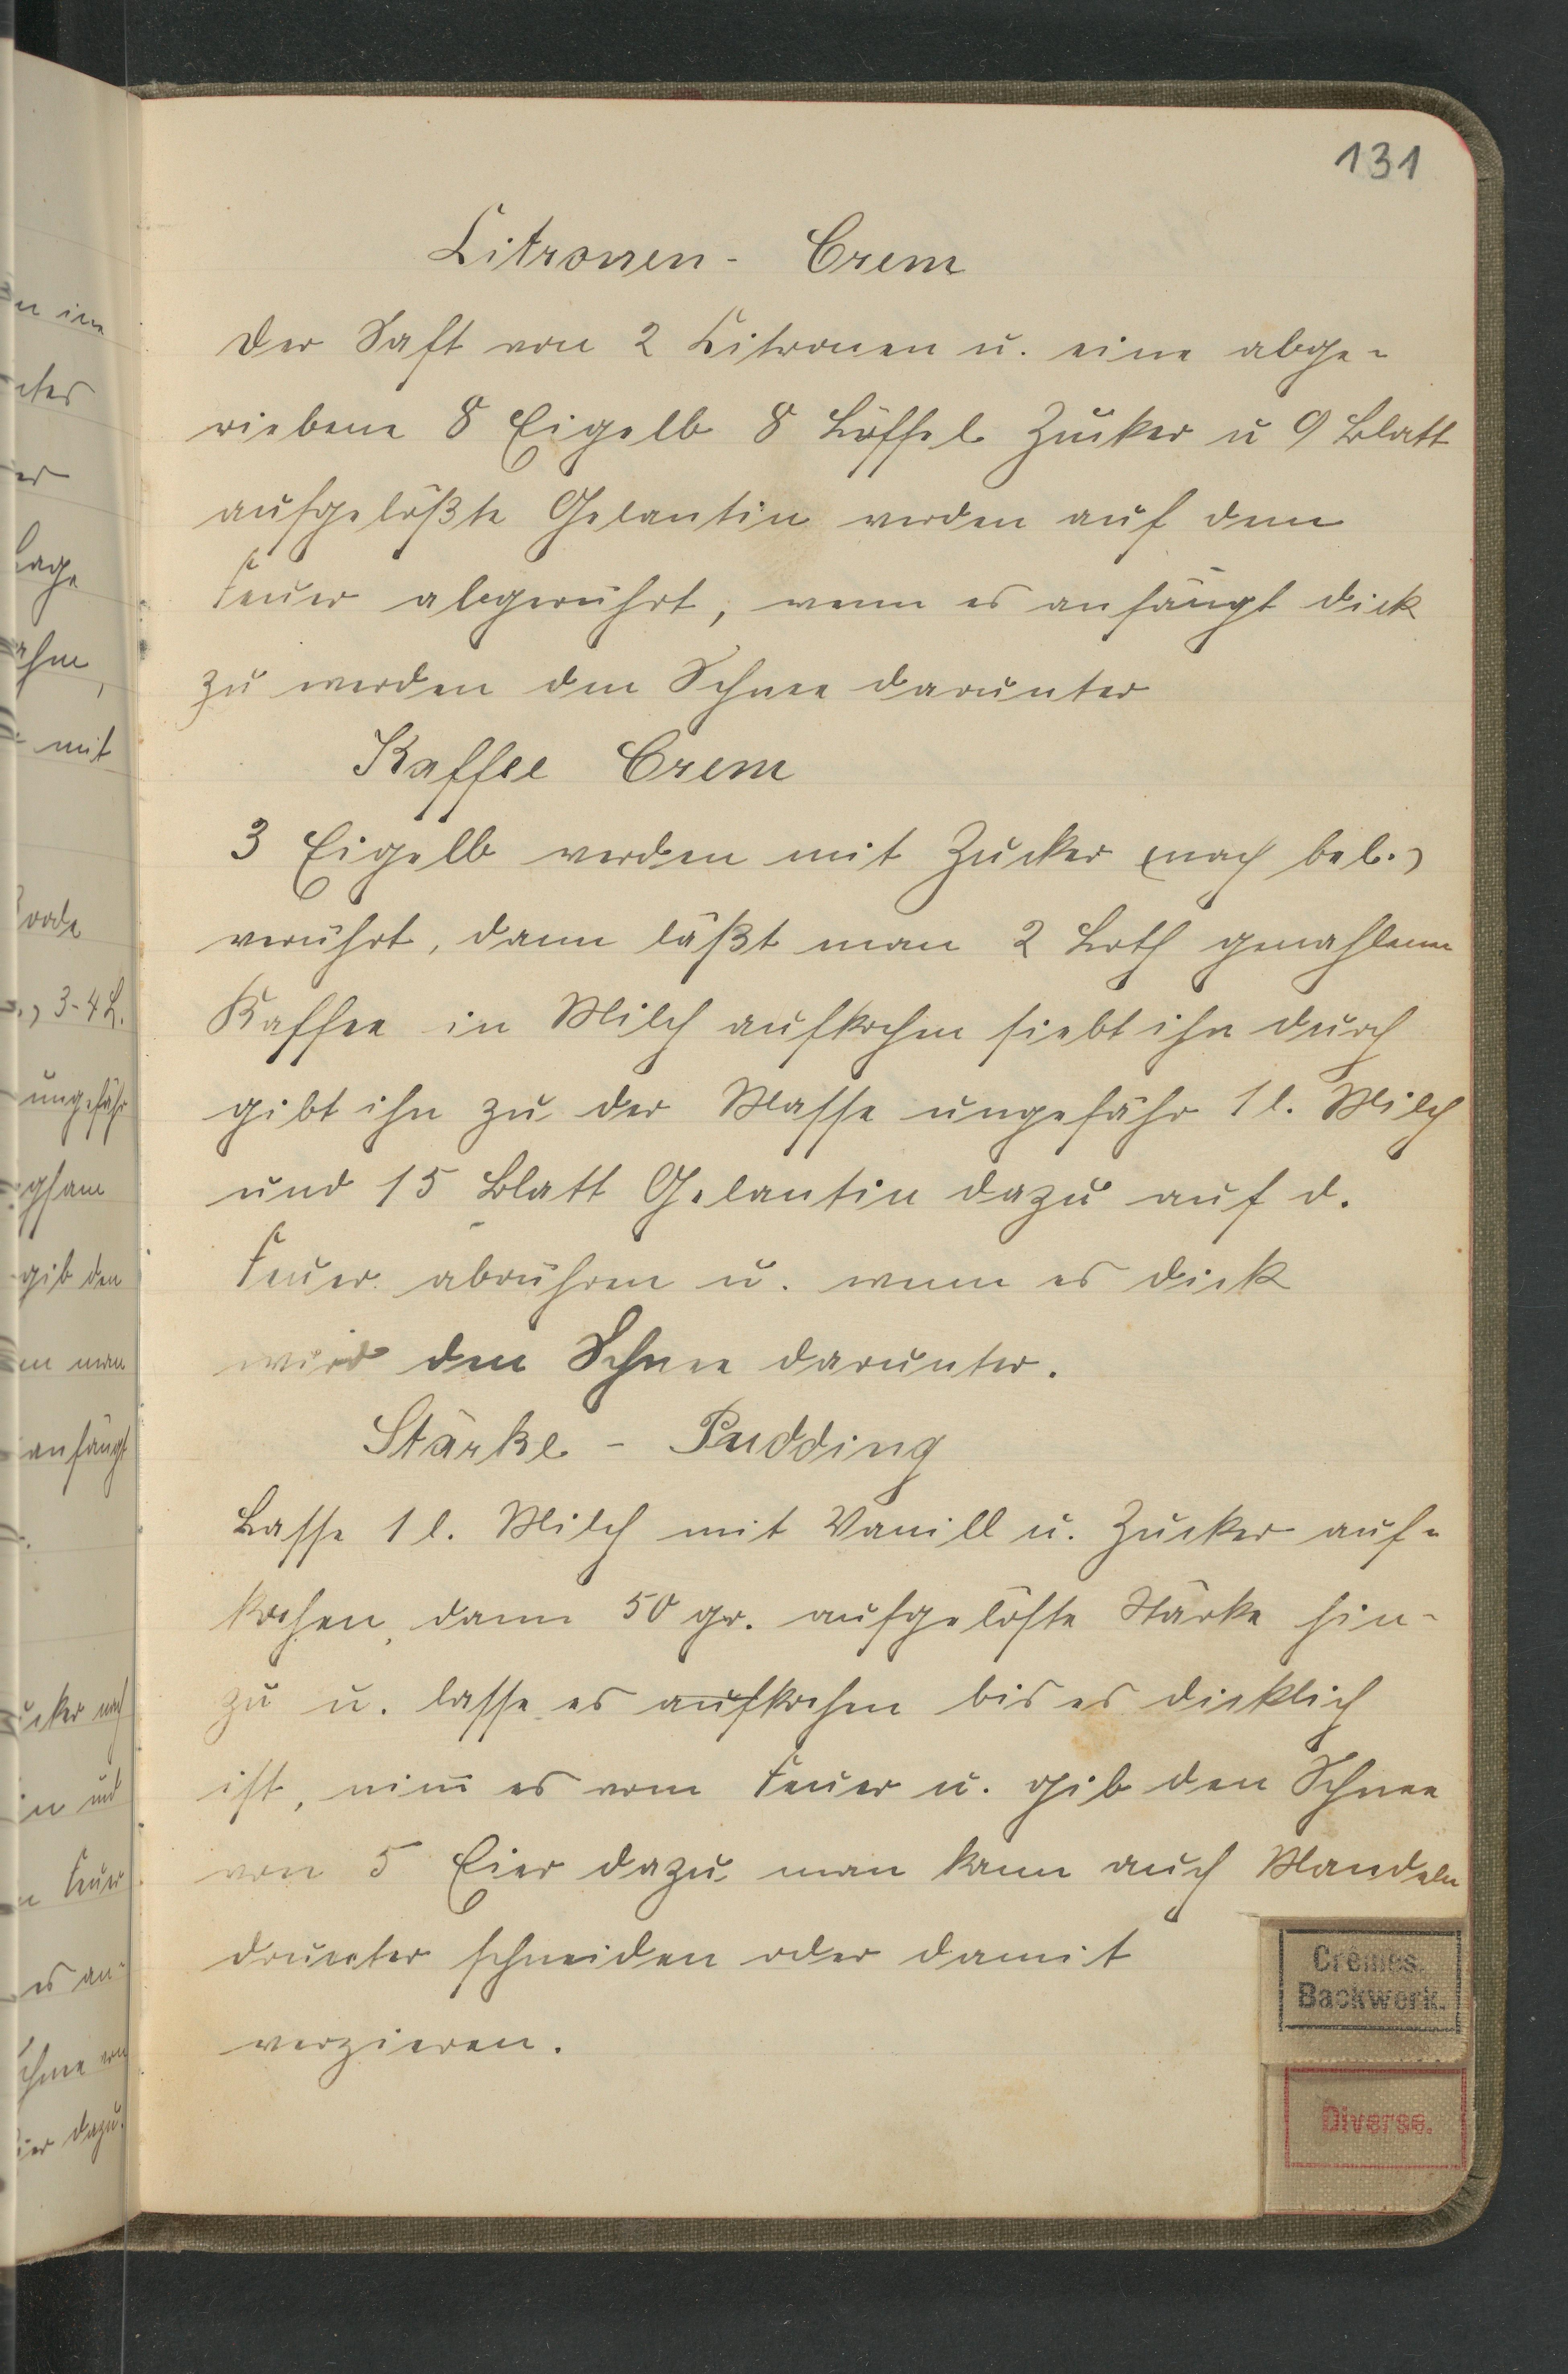 131
Citronen - Crem
Der Saft von 2 Citronen u. eine abge-
riebene 8 Eigelb 8 Löffel Zucker u 9 Blatt
aufgelößte Gelantin werden auf dem
Feuer abgerührt, wenn es anfängt dick
zu werden den Schnee darunter
Kaffee Crem
3 Eigelb werden mit Zucker (nach bel.)
verührt, dann läßt man 2 Loth gemahlenen
Kaffee in Milch aufkochen siebt ihn durch
gibt ihn zu der Masse ungefähr 1 l. Milch
und 15 Blatt Gelantin dazu auf d.
Feuer abrühren u. wenn es dick
wird den Schnee darunter.
Stärke - Pudding
Lasse 1 l. Milch mit Vanill u. Zucker auf-
kochen, dann 50 gr. aufgelöste Stärke hin-
zu u. lasse es aufkochen bis es dicklich
ist, nim̄ es vom Feuer u. gib den Schnee
von 5 Eier dazu, man kann auch Mandeln
drunter schneiden oder damit
verzieren.
Crêmes.
Backwerk.
Diverse.